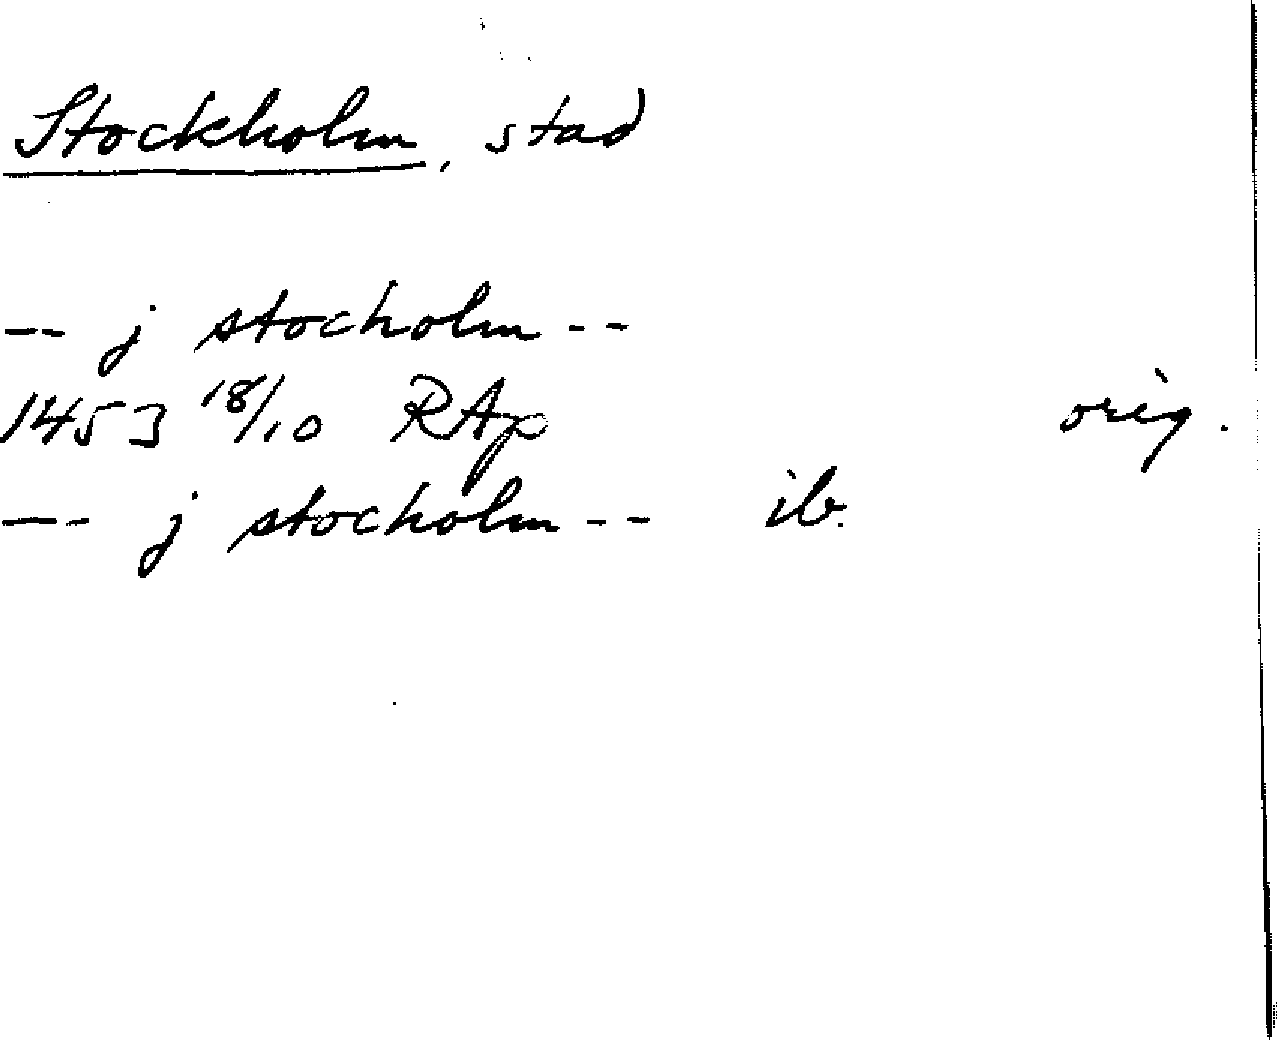 Stockholm, stad
-- j stocholm --
1453 18/10 RAp orig.
--- j stocholm -- ib.